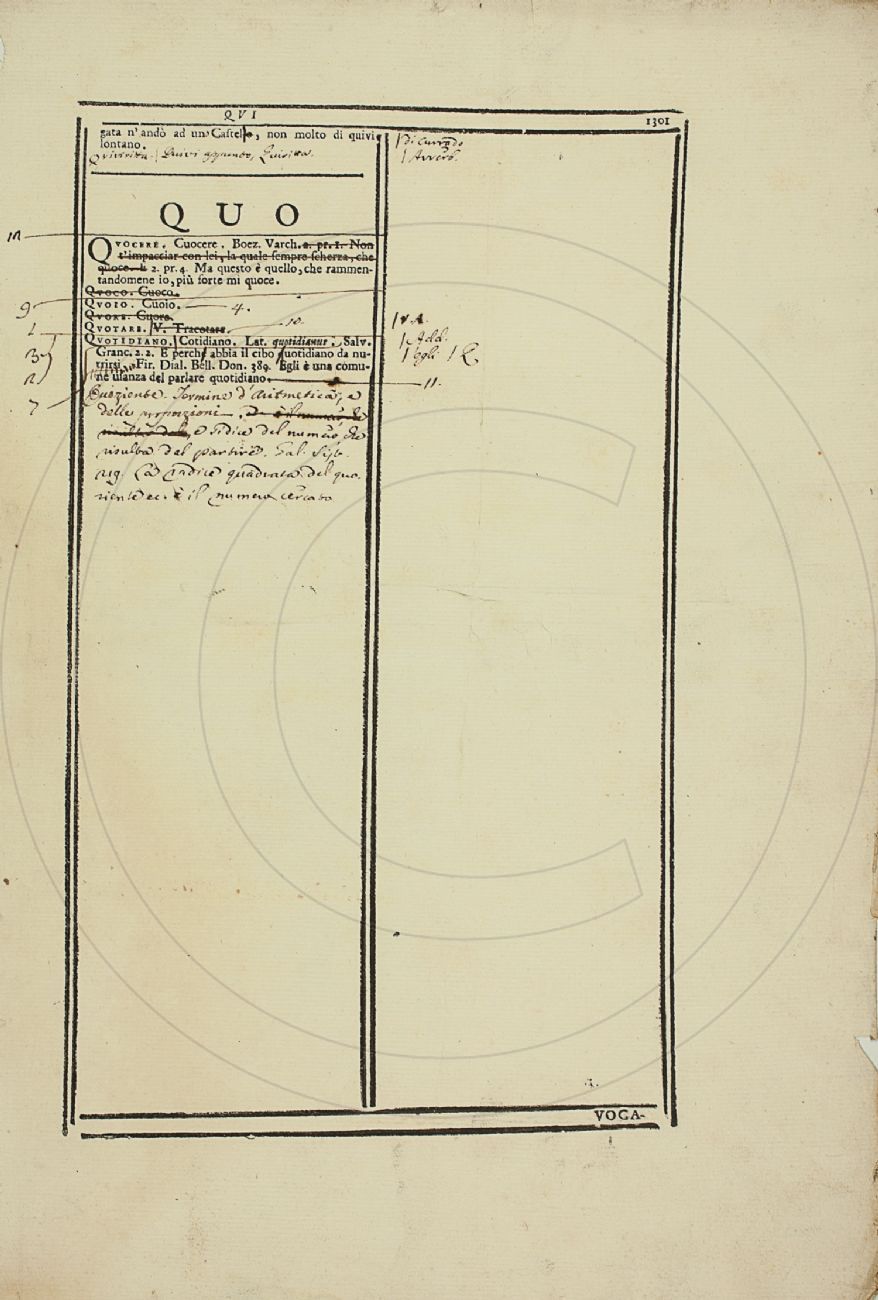 QVI
1301
gata n' andò ad un Castello, non molto di quivi
lontano.
Quivi appunto, Quiritta.
Avverb.
QUO
QVOCERE. Cuocere. Boez. Varch. 2. pr. 1. Non
t'impacciar con lei, la quale sempre scherza, che
quoce. E 2. pr. 4. Ma questo è quello, che rammen-
tandomene io, più forte mi quoce.
QVOCO. Cuoco.
9
QVOIO. Cuoio.
4.
QVORE. Cuore.
10.
V.A.
1
QVOTARE. V. Tracotare.
QVOTIDIANO. Cotidiano. Lat. quotidianus. Salv.
Add.
3
Granc. 2. 2. E perch' abbia il cibo quotidiano da nu-
trirsi. Fir. Dial. Bell. Don. 389. Egli è una comu-
egli
2
ne usanza del parlare quotidiano.
11.
7
Quoziente. Termine d'Aritmetica, e
delle proporzioni
e indice del numero, che
risulta dal partire. Gal. Sist.
quadrata del quo-
ziente ec. è il numero cercato
VOCA-